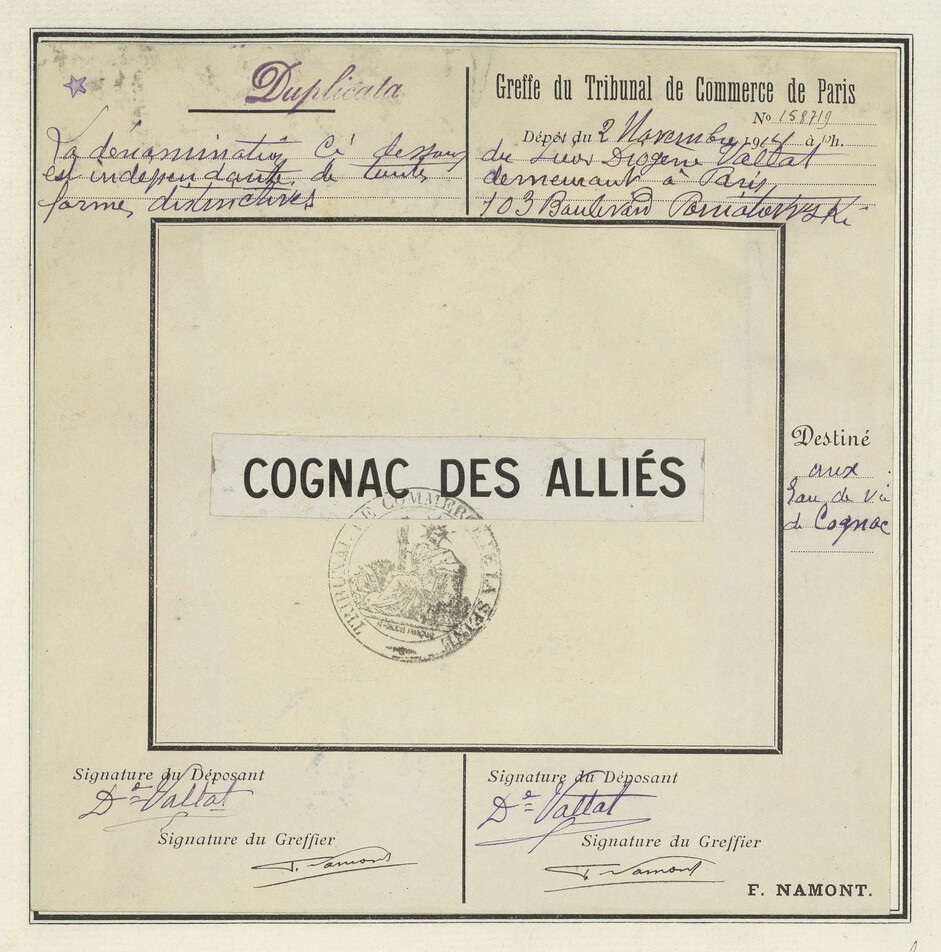 Duplicata
La dénomination Ci dessous
est indépendante de toutes
formes distinctives
Greffe du Tribunal de Commerce de Paris
No 158719
Dépôt du 2 Novembre 1914 à h.
du Sieur Diogène Vallat
demeurant à Paris,
103 Boulevard Poniatowski
COGNAC DES ALLIÉS
TRIBUNAL DE COMMERCE DE LA SEINE
Destiné
aux
Eau de Vie
de Cognac
Signature du Déposant
De Vallat
Signature du Greffier
F. Namont
Signature du Déposant
De Vallat
Signature du Greffier
F. Namont
F. NAMONT.